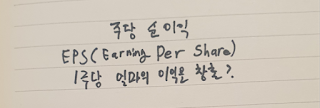 주당 순이익
EPS(Earning Per Share)
1주당 얼마의 이익을 창출?